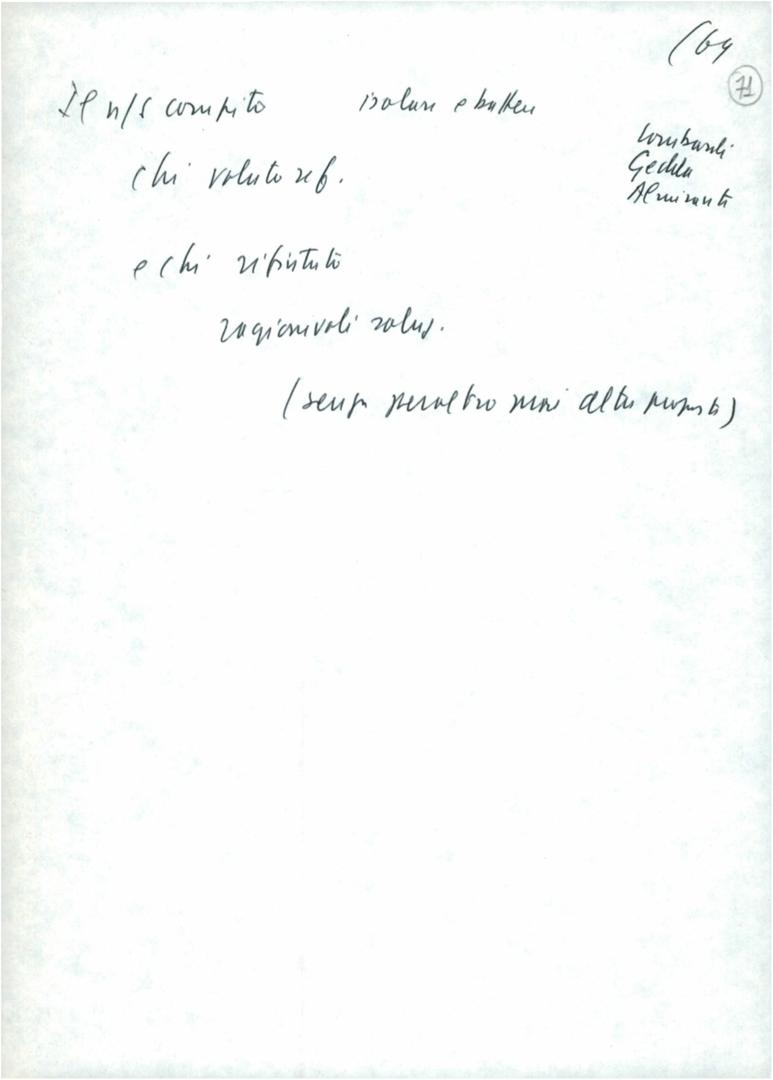 (64
71
Il n/s compito isolare e battere
Lombardi
Gedda
Almirante
chi voluto ref.
e chi rifiutato
ragionevoli soluz.
(senza peraltro mai altre proposte)